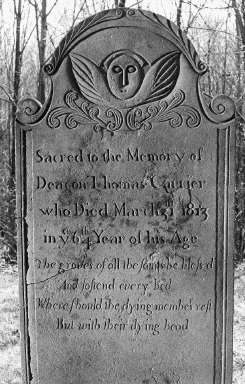 Sacred to the Memory of
Deacon Thomas Carrier
who Died March 31 1813
in yᵉ 6 Year of his Age
The graves of all the saints he bless'd
And softend every bed
Where should the dying members rest
But with their dying head